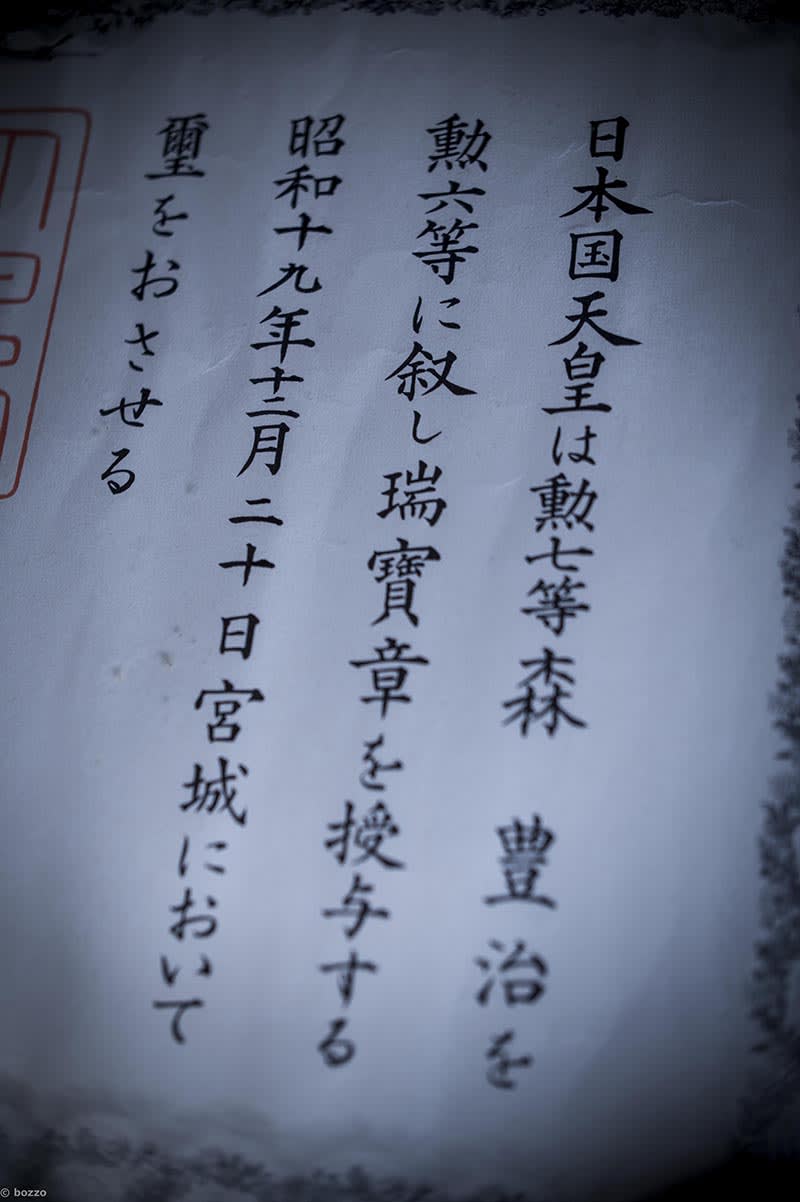 日本国天皇は勲七等森　豊治を
勲六等に叙し瑞寶章を授与する
昭和十九年十二月二十日宮城において
璽をおさせる
© bozzo